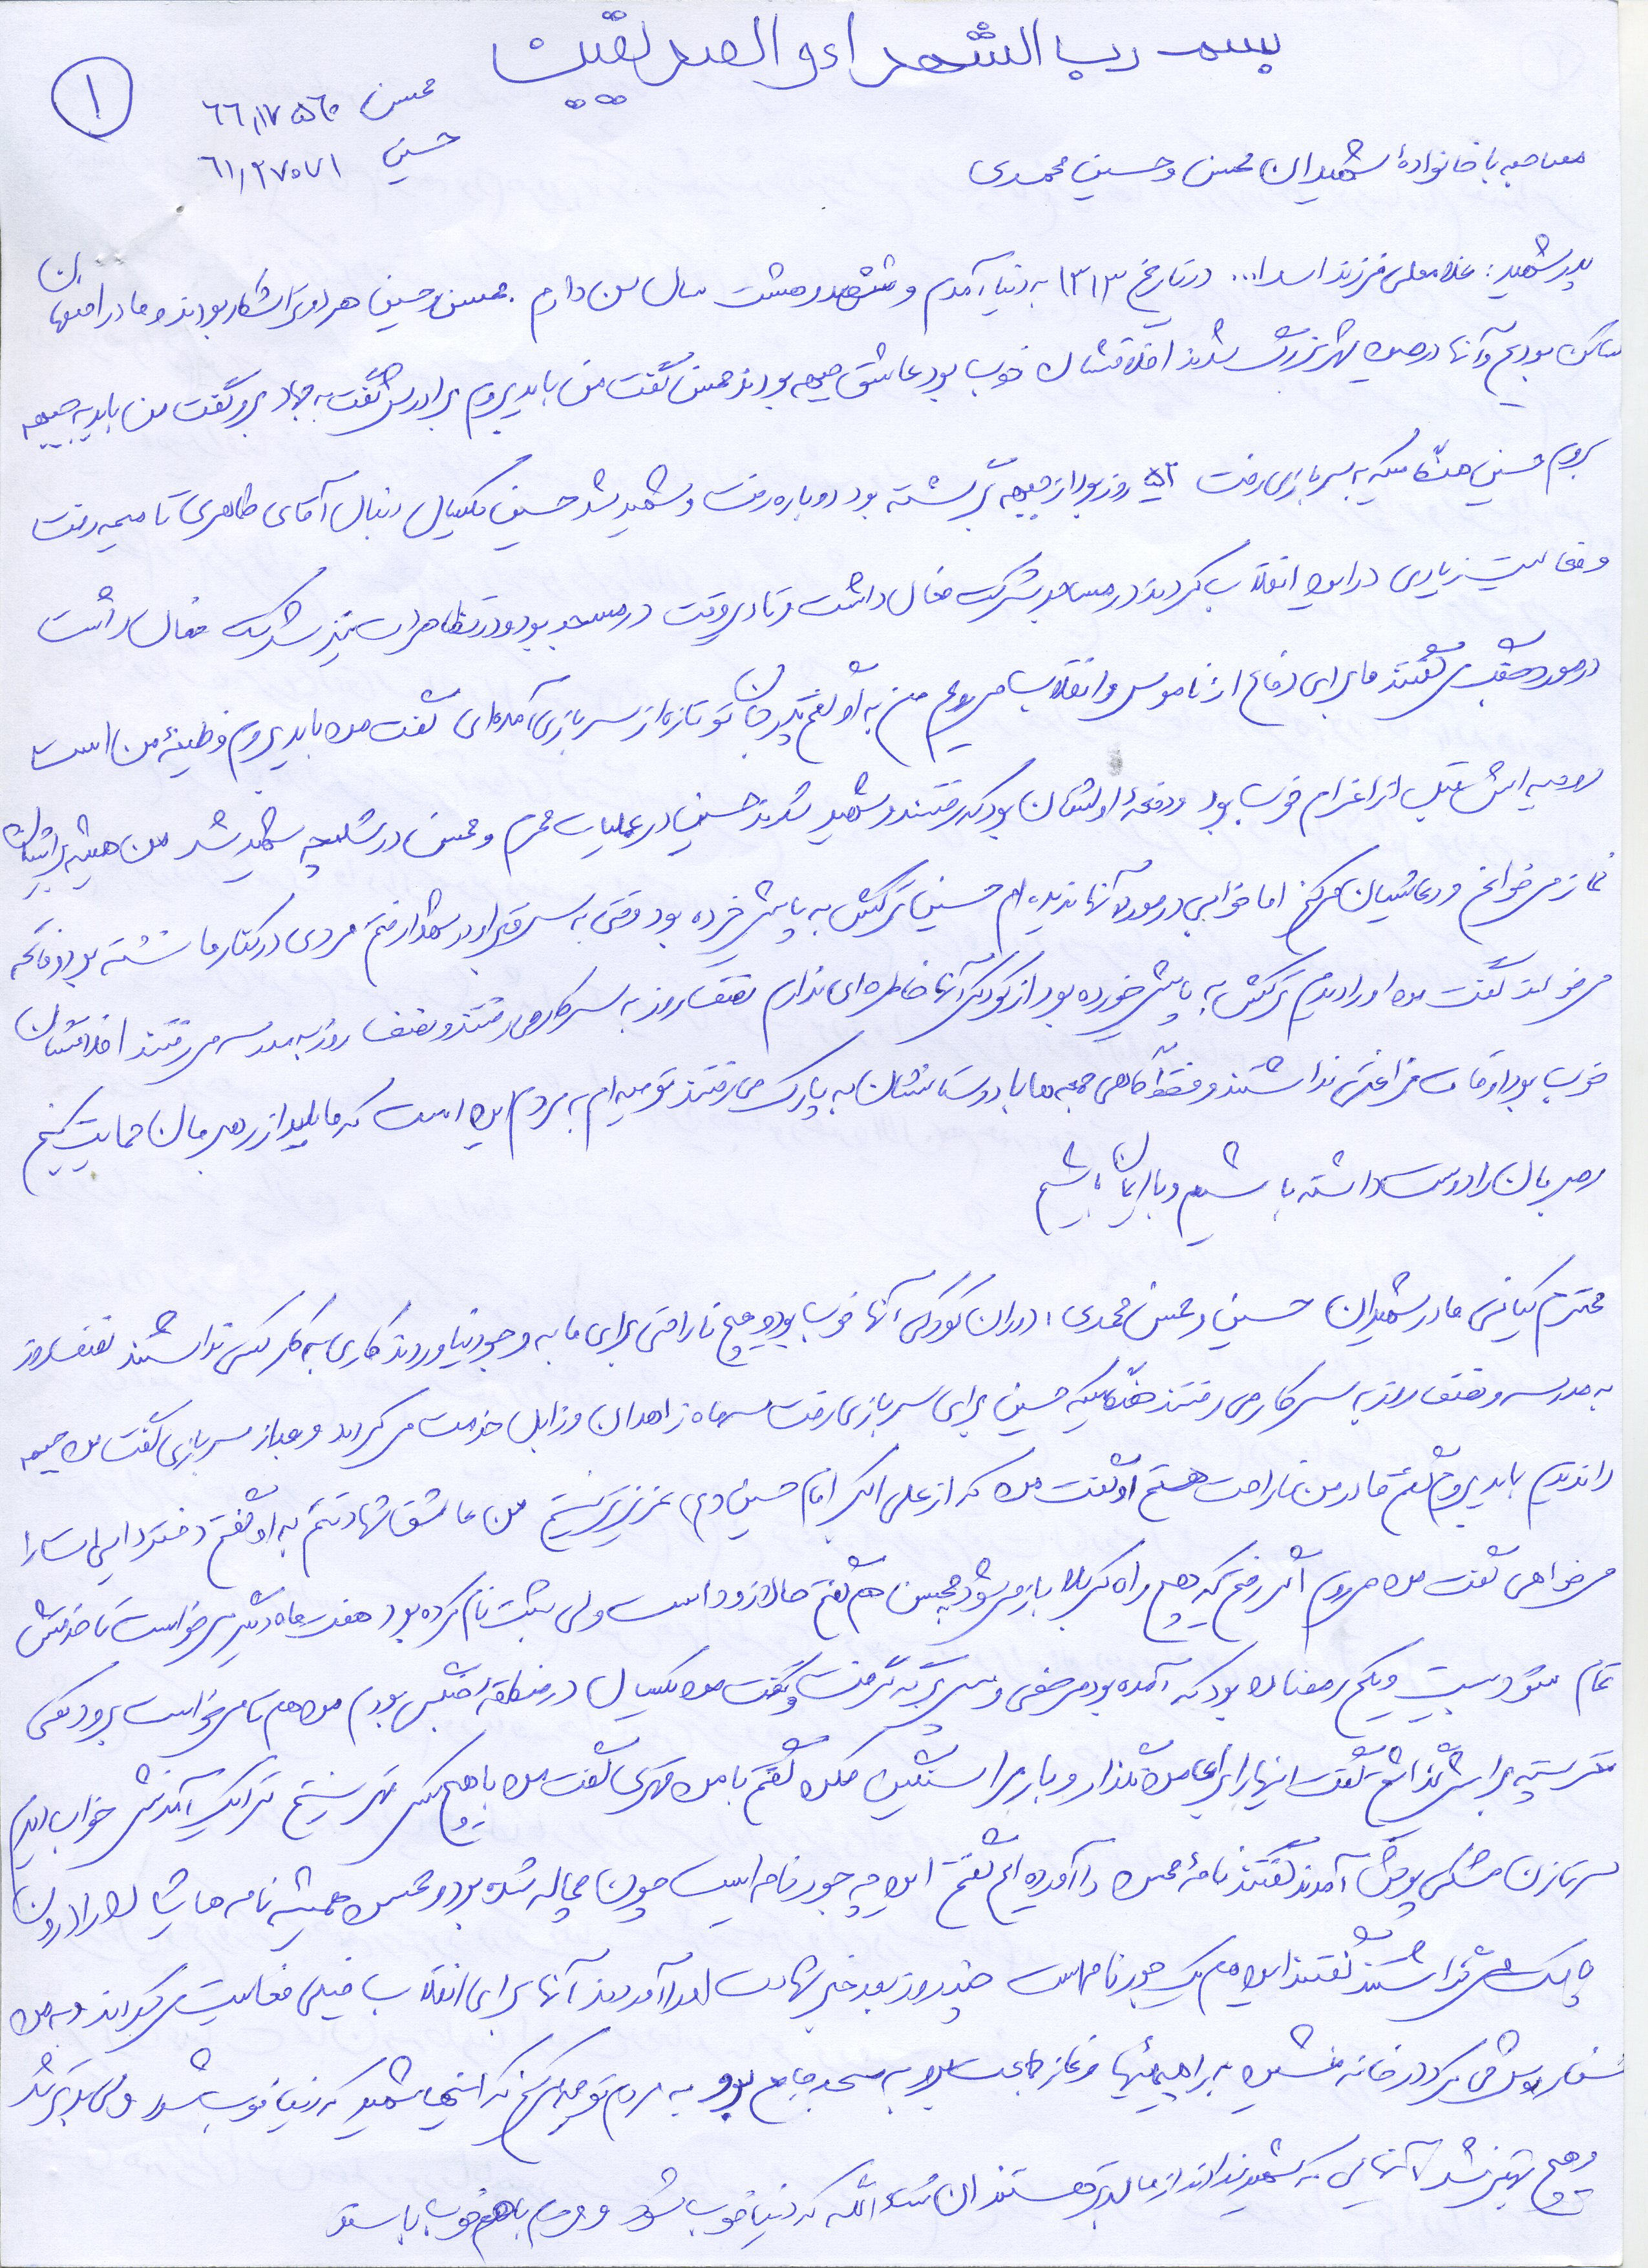 بسم رب الشهداء و الصدیقین
۱
محسن ٦٦١٧٥٦٠
حسین ٦١٢٧٠٧١
مصاحبه با خانوادهٔ شهیدان محسن و حسین محمدی
پدر شهید: غلامعلی فرزند اسدا... در تاریخ ۱۳۱۳ به دنیا آمدم و شصت و هشت سال سن دارم. محسن و حسین هر دو تراشکار بودند و ما در اصفهان
ساکن بودیم و آنها در همین شهر بزرگ شدند اخلاقشان خوب بود عاشق جبهه بودند محسن گفت من باید بروم برادرش گفت به جهاد برو گفت من باید به جبهه
بروم حسین هنگامیکه به سربازی رفت ۵۳ روز بود از جبهه برگشته بود دوباره رفت و شهید شد حسین یکسال دنبال آقای طاهری تا میمه رفت
و فعالیت زیادی در این انقلاب کردند در مساجد شرکت فعال داشت و تا دیروقت در مسجد بود و در تظاهرات نیز شرکت فعال داشت
در مورد جبهه می گفتند ما برای دفاع از ناموس و انقلاب می رویم من به او گفتم پدر جان تو تازه از سربازی آمده‌ای گفت من باید بروم وظیفهٔ من است
روحیه اش قبل از اعزام خوب بود و دفعهٔ اولشان بود که رفتند و شهید شدند حسین در عملیات محرم و محسن در شلمچه شهید شد من همیشه برایشان
نماز می خوانم و دعاشان می کنم اما خوابی در مورد آنها ندیده ام حسین ترکش به پایش خرده بود وقتی به سر قبر او در گلزار رفتم مردی در کنار ما نشسته بود و فاتحه
می خواند گفت من او را دیدم ترکش به پایش خورده بود از کودکی آنها خاطره ای ندارم نصف روز به سر کار می رفتند و نصف روز به مدرسه می رفتند اخلاقشان
خوب بود اوقات فراغتی نداشتند و فقط گاهی جمعه ها با دوستانشان به پارک می رفتند توصیه ام به مردم این است که ما باید از رهبرمان حمایت کنیم
رهبرمان را دوست داشته باشیم و با ایمان باشیم
محترم کیانی مادر شهیدان حسین و محسن محمدی: دوران کودکی آنها خوب بود و هیچ ناراحتی برای ما به وجود نیاوردند کاری به کار کسی نداشتند نصف روز
به مدرسه و نصف روز به سر کار می رفتند هنگامیکه حسین برای سربازی رفت سه ماه زاهدان و زابل خدمت می کردند و بعد از سربازی گفت من جبهه
را ندیدم باید بروم گفتم مادر من ناراحت هستم او گفت من که از علی اکبر امام حسین (ع) عزیزتر نیستم من عاشق شهادتم به او گفتم دختر دایی ات را
می خواهی گفت من می روم اگر رفتم که هیچ راه کربلا باز می شود محسن هم گفتم حالا زود است ولی ثبت نام کرده بود هفت ماه دیگر می خواست تا خدمتش
تمام شود بیست و یکم رمضان بود که آمده بود مرخصی و گفت من یکسال در منطقه جنگی بودم من هم می خواست برود کمی
پسته برایش گذاشتم گفت اینها را برای من نگذار و بارم را سنگین مکن گفتم با من قهری گفت من با هیچکس قهر نیستم خواب دیدم
سه تا زن مشکی پوش آمدند گفتند نامهٔ محسن را آورده ایم گفتم این چه جور نامه است چون مچاله شده بود و محسن همیشه نامه هایشان را درون
پاکت می گذاشتند گفتند این هم یک جور نامه است چند روز بعد خبر شهادت او را آوردند آنها برای انقلاب خیلی فعالیت می کردند و به من
سفارش می کرد در خانه منشین به راهپیمائیها و نماز جماعت برو به مسجد جامع برو به مردم توصیه می کنم که اینها شهید که دنیا خوب باشد ولی بدتر شد
و هیچ بهتر نشد آنهایی که شهید نداده اند از ما بدتر هستند ان شاء الله که دنیا خوب شود و مردم با هم خوب باشند